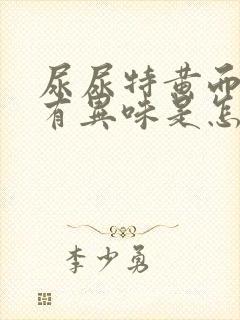 尿尿特黄而
有異味是怎
李少勇